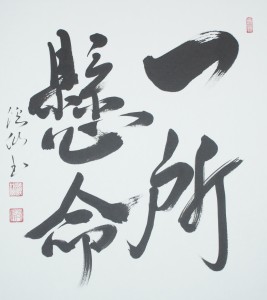 一所
懸命